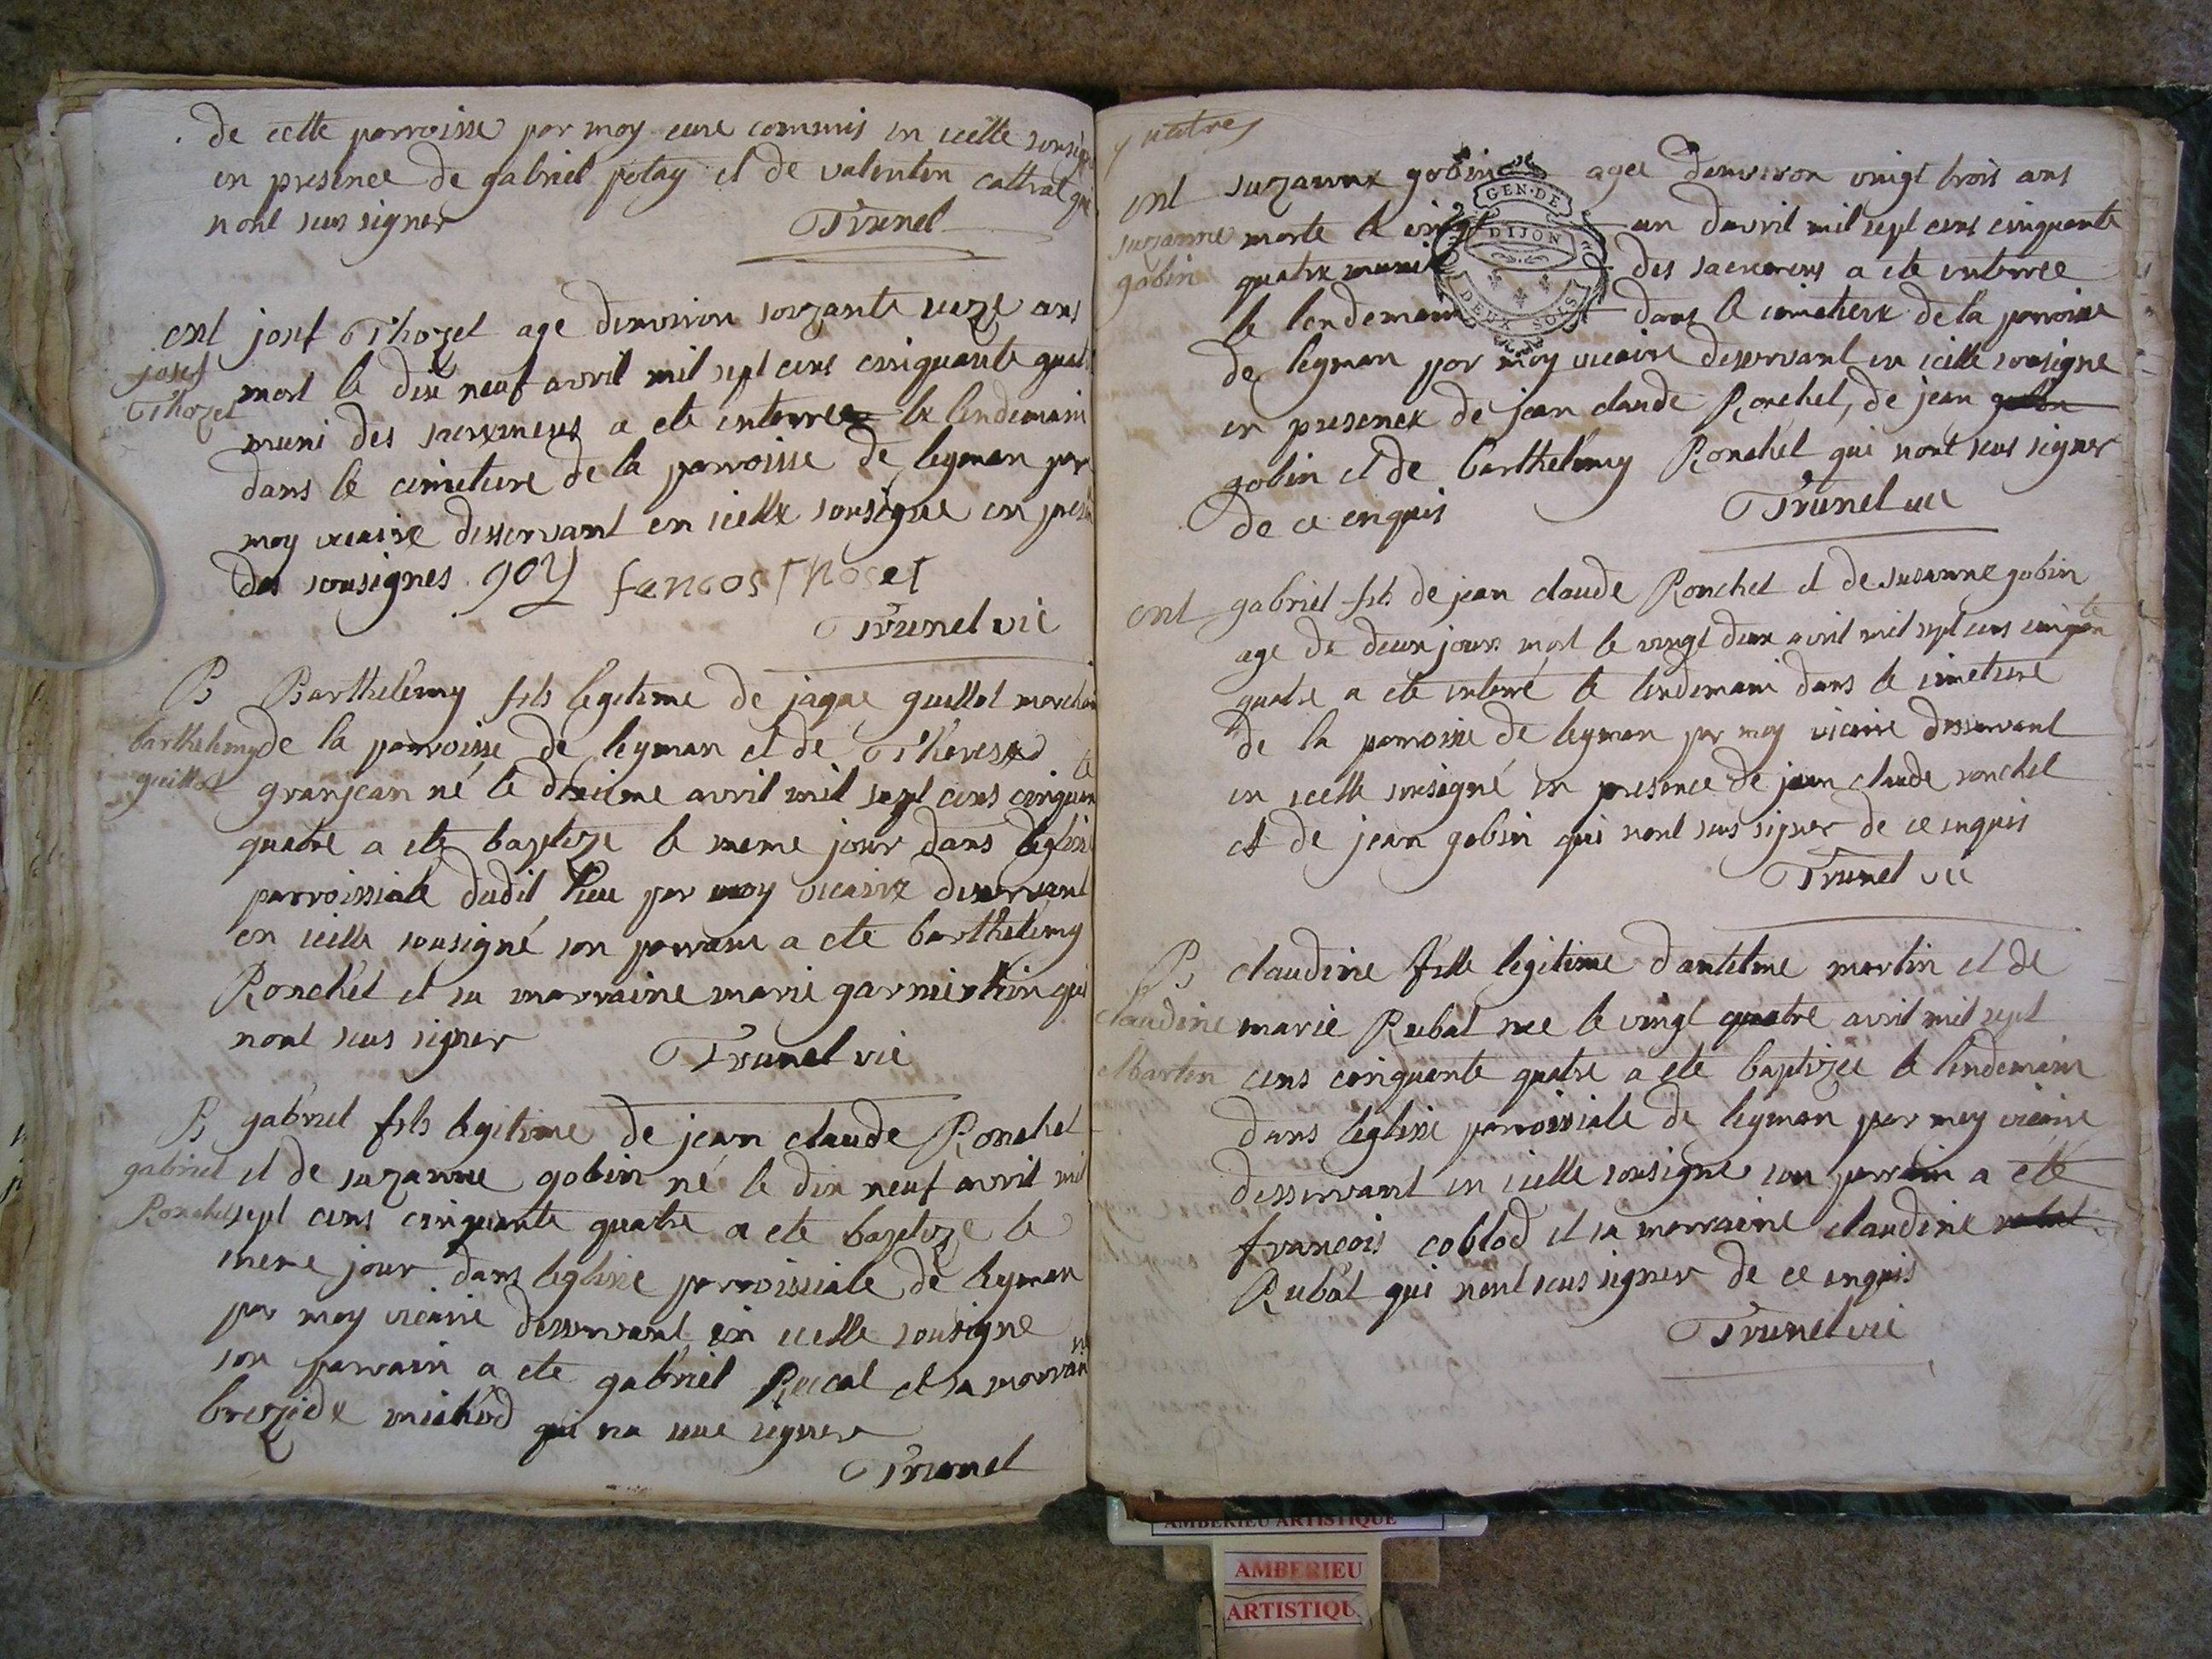 de cette parroisse par moy cure commis en icelle sousigne
en presence de gabriel potay et de valentin cattral qui
nont seus signer
Trunel
ent josef Thozet age denviron soizante seze ans
josef
Thozet
mort le dix neuf avril mil sept cens cinquante quat
muni des sacremens a ete enterree le lendemain
dans le cimetiere de la parroisse de leyman par
moy vicaire desservant en icelle sousigne en pres
des sousignes goy fancos Thoset
Trunel vic
B Barthelemy fils legitime de jaque guillot marchan
barthelemy
guillot
de la parroisse de leyman et de Therese
granjean né le dixieme avril mil sept cens cinquan te
quatre a ete baptize le meme jour dans leglise
parroissiale dudit lieu par moy vicaire desservant
en icelle sousigné son parrain a ete barthelemy
Ronchet et sa marraine marie garnier qui
nont seus signer
Trunel vic
B gabriel fils legitime de jean claude Ronchet
gabriel
Ronchet
et de suzanne gobin né le dix neuf avril mil
sept cens cinquante quatre a ete baptize le
meme jour dans leglise parroissiale de leyman
par moy vicaire desservant en icelle sousigne
son parrain a ete gabriel Reical et sa marrain ne
brezide michod qui na seue signer
Trunel
quatre
ent suzanne gobin agee denviron vingt trois ans
suzanne
gobin
morte le vingt un davril mil sept cens cinquante
quatre munie des sacremens a ete enterree
le lendemain dans le cimetiere de la parroisse
de leyman par moy vicaire desservant en icelle sousigne
en presence de jean claude Ronchet, de jean gobin
gobin et de barthelemy Ronchet qui nont seus signer
de ce enquis
Trunel vic
GEN. DE
DIJON
DEUX SOLS
ent gabriel fils de jean claude Ronchet et de susanne gobin
age de deux jours mort le vingt deux avril mil sept cens cinquan te
quatre a ete enterré le lendemain dans le cimetiere
de la parroisse de leyman par moy vicaire desservant
en icelle sousigné en presence de jean claude ronchet
et de jean gobin qui nont seus signer de ce enquis
Trunel vic
B claudine fille legitime dantelme martin et de
claudine
Martin
marie Rubat nee le vingt quatre avril mil sept
cens cinquante quatre a ete baptizee le lendemain
dans leglise parroissiale de leyman par moy vicaire
desservant en icelle sousigne son parrain a ete
françois coblod et sa marraine claudine
Rubat qui nont seus signer de ce enquis
Trunel vic
AMBERIEU ARTISTIQUE
AMBERIEU
ARTISTIQU